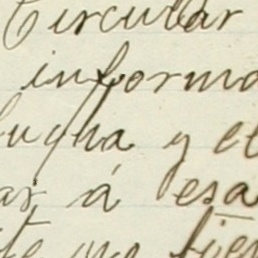 Circular
informa
fugha y el
ar á esa
te no tien